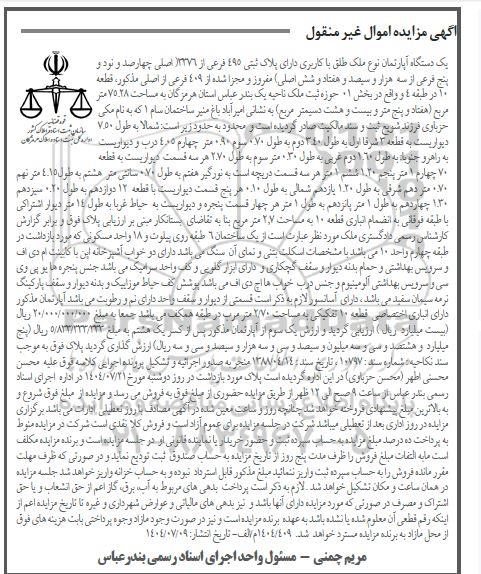 آگهی مزایده اموال غیر منقول
یک دستگاه آپارتمان نوع ملک طلق با کاربری دارای پلاک ثبتی ۴۹۵ فرعی از ۳۳۷۶( اصلی چهارصد و نود و
پنج فرعی از سه هزار و سیصد و هفتاد و شش اصلی) مفروز و مجزا شده از ۴۰۹ فرعی از اصلی مذکور، قطعه
۱۰ در طبقه ۴ و واقع در بخش ۰۱ حوزه ثبت ملک ناحیه یک بندر عباس استان هرمزگان به مساحت ۷۵.۲۸ متر
مربع (هفتاد و پنج متر و بیست و هشت دسیمتر مربع) به نشانی امیرآباد باغ منبر ساختمان سام ۱ که به نام مکی
حزباوی فرزند شریح ثبت و سند مالکیت صادر گردیده است و محدود به حدود زیر است: شمالا به طول ۷.۵۰
دیواریست به قطعه ۳ شرقا اول به طول ۳.۴۰ دوم به طول ۰.۷۰ سوم ۰.۹۰ متر چهارم ۴.۰۵ درب و دیواریست
به راهرو جنوبا: به طول ۱.۲۰ دوم غربی به طول ۰.۳۰ سوم به طول ۲.۷۰ هر سه قسمت دیواریست به قطعه
۷۰ چهارم ۱ متر پنجم ۱.۲۰ ششم ۱ متر هر سه قسمت دریچه است به نورگیر هفتم به طول ۰.۷۰ سانتی متر هشتم به طول ۴.۱۵ متر نهم
۰.۷۰ متر دهم شرقی به طول ۱.۲۰ یازدهم شمالی به طول ۰.۱۰ هر پنج قسمت دیواریست با قطعه ۱۲ دوازدهم به طول ۰.۲۰ سیزدهم
۱.۳۰ چهاردهم به طول ۱ متر پانزدهم به طول ۱ متر هر چهار قسمت پنجره و دیواریست به حیاط غربا به طول ۱۴ متر دیوار اشتراکی
با طبقه فوقانی به انضمام انباری قطعه ۱۰ به مساحت ۲.۷ متر مربع بنا به تقاضای بستانکار مبنی بر ارزیابی پلاک فوق و برابر گزارش
کارشناس رسمی دادگستری ملک مورد نظر عبارت است از یک ساختمان ۶ طبقه روی پیلوت و ۱۸ واحد مسکونی که مورد بازداشت در
طبقه چهارم واحد ۱۰ می باشد با مشخصات اسکلت بتنی و نمای آن سنگ می باشد دارای دو خواب آشپزخانه اپن با کابینت ام دی اف
و سرویس بهداشتی و حمام بدنه دیوار و سقف گچکاری و دارای ابزار گلویی و کف واحد سرامیک می باشد جنس پنجره ها یو پی وی
سی و سرویس بهداشتی آلومینیوم و جنس درب خواب ها اچ دی اف می باشد پوشش کف حیاط موزاییک و بدنه دیوار و سقف پارکینگ
نرمه سیمان سفید می باشد ، دارای آسانسور لازم به ذکر است قسمتی از دیوار و سقف واحد دارای نم و رطوبت می باشد آپارتمان مذکور
دارای انباری اختصاصی قطعه ۱۰ تفکیکی به مساحت ۲/۷۰ متر مربع در طبقه همکف می باشد جمعا به مبلغ ۲۰/۰۰۰/۰۰۰/۰۰۰ ریال
(بیست میلیارد ریال) ارزیابی گردید و ارزش یک سوم از آپارتمان مذکور پس از کسر یک هشتم به مبلغ ۵/۸۳۳/۳۳۳/۳۳۳ ریال (پنج
میلیارد و هشتصد و سی و سه میلیون و سیصد و سی و سه هزار و سیصد و سی و سه ریال) ارزش گذاری گردید پلاک فوق به موجب
سند نکاحیه : شماره سند: ۱۰۷۹۷ ، تاریخ سند: ۱۳۸۸/۰۴/۱۴ منجر به صدور اجرائیه و تشکیل پرونده اجرایی کلاسه فوق علیه محسن
محسنی اطهر (محسن حزباوی) در این اداره گردیده است پلاک مورد بازداشت در روز دوشنبه مورخ ۱۴۰۴/۰۷/۲۱ در اداره اجرای اسناد
رسمی بندر عباس از ساعت ۹ صبح الی ۱۲ ظهر از طریق مزایده حضوری از مبلغ فوق به فروش می رسد و مزایده از مبلغ فوق شروع و
به بالاترین مبلغ پیشنهادی فروخته خواهد شد. چنانچه روز و ساعت معین شده در آگهی مصادف با روز تعطیلی ادارات می باشد برگزاری
مزایده در روز اداری بعد از تعطیلی میباشد شرکت در جلسه مزایده برای عموم آزاد است و فروش کلا نقدی است شرکت در مزایده منوط
به پرداخت ده درصد مبلغ مزایده به حساب سپرده ثبت و حضور خریدار یا نماینده قانونی او در جلسه مزایده است و برنده مزایده مکلف
است مابه التفات مبلغ فروش را ظرف مدت پنج روز از تاریخ مزایده به حساب صندوق ثبت تودیع نماید و در صورتی که ظرف مهلت
مقرر مانده فروش را به حساب سپرده ثبت واریز ننمائید مبلغ مذکور قابل استرداد نبوده و به حساب خزانه واریز خواهد شد جلسه مزایده
در همان ساعت و مکان تشکیل خواهد شد. لازم به ذکر است پرداخت بدهی های مربوط به آب، برق، گاز اعم از حق انشعاب و یا حق
اشتراک و مصرف در صورتی که مورد مزایده دارای آنها باشد و نیز بدهی های مالیاتی و عوارض شهرداری و غیره تا تاریخ مزایده اعم از
اینکه رقم قطعی آن معلوم شده یا نشده باشد به عهده برنده مزایده است و نیز در صورت وجود مازاد وجوه پرداختی بابت هزینه های فوق
از محل مازاد به برنده مزایده مسترد خواهد شد. ۱۴۰۴/۴۰۹م/الف- تاریخ انتشار: ۱۴۰۴/۰۷/۰۹
مریم چمنی - مسئول واحد اجرای اسناد رسمی بندرعباس